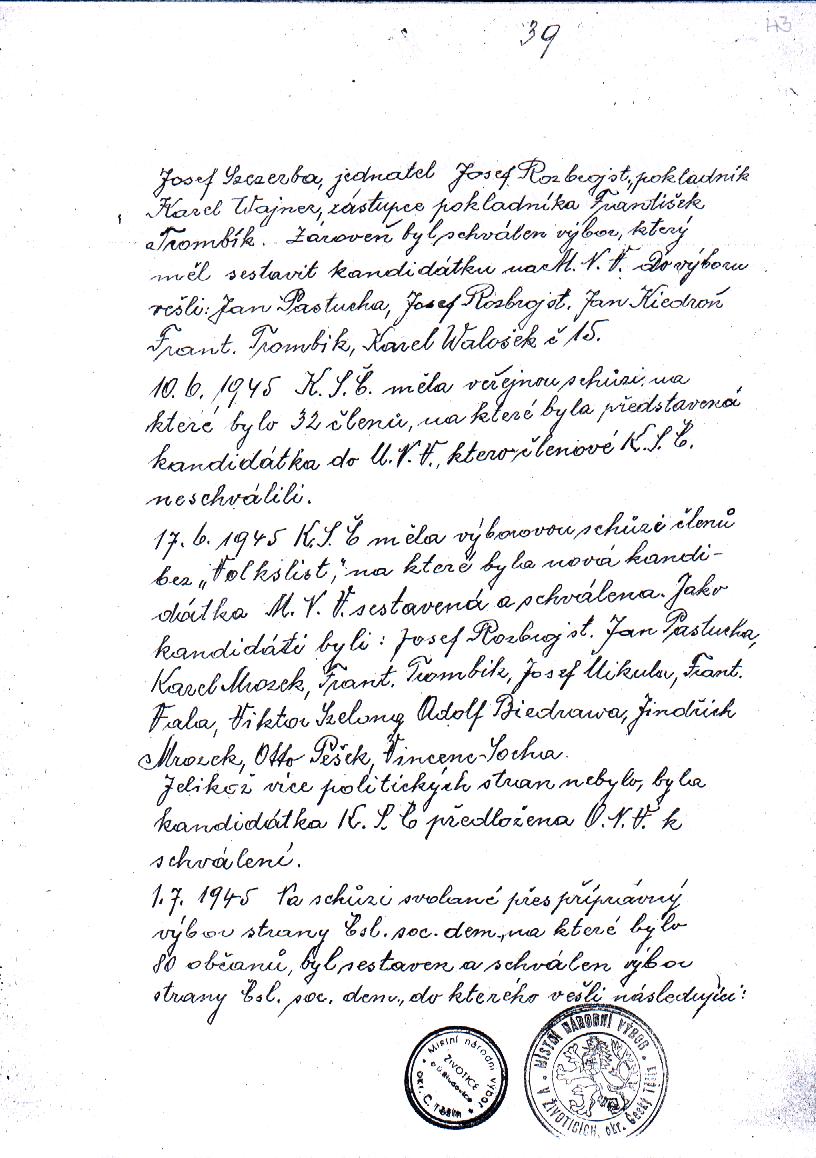 39
43
Josef Szczerba, jednatel Josef Rozbrojst., pokladník
Karel Wajner, zástupce pokladníka František
Trombík. Zároveň byl schválen výbor, který
měl sestavit kandidátku na M. N. V. Do výboru
vešli: Jan Pastucha, Josef Rozbrojst. Jan Kiedroň
Frant. Trombik, Karel Walošek č 15.
10. 6. 1945 K. S. Č. měla veřejnou schůzi, na
které bylo 32 členů, na které byla představená
kandidátka do M. N. V., kterou členové K. S. Č.
neschválili.
17. 6. 1945 K. S. Č měla výborovou schůzi členů
bez „Volkslist", na které byla nová kandi-
dátka M. N. V. sestavená a schválena. Jako
kandidáti byli: Josef Rozbrojst. Jan Pastucha,
Karel Mrozek, Frant. Trombik, Josef Mikula, Frant.
Fala, Viktor Szelong Adolf Biedrawa, Jindřich
Mrozek, Otto Pešek, Vincenc Socha.
Jelikož více politických stran nebylo, byla
kandidátka K. S. Č předložena O. N. V. k
schválení.
1. 7. 1945 Na schůzi svolané přes přípravný
výbor strany Čsl. soc. dem., na které bylo
80 občanů, byl sestaven a schválen výbor
strany Čsl. soc. dem., do kterého vešli následující:
Místní národní výbor
ŽIVOTICE
okr. Č. Těšín
MÍSTNÍ NÁRODNÍ VÝBOR
V ŽIVOTICÍCH, okr. Český Těšín